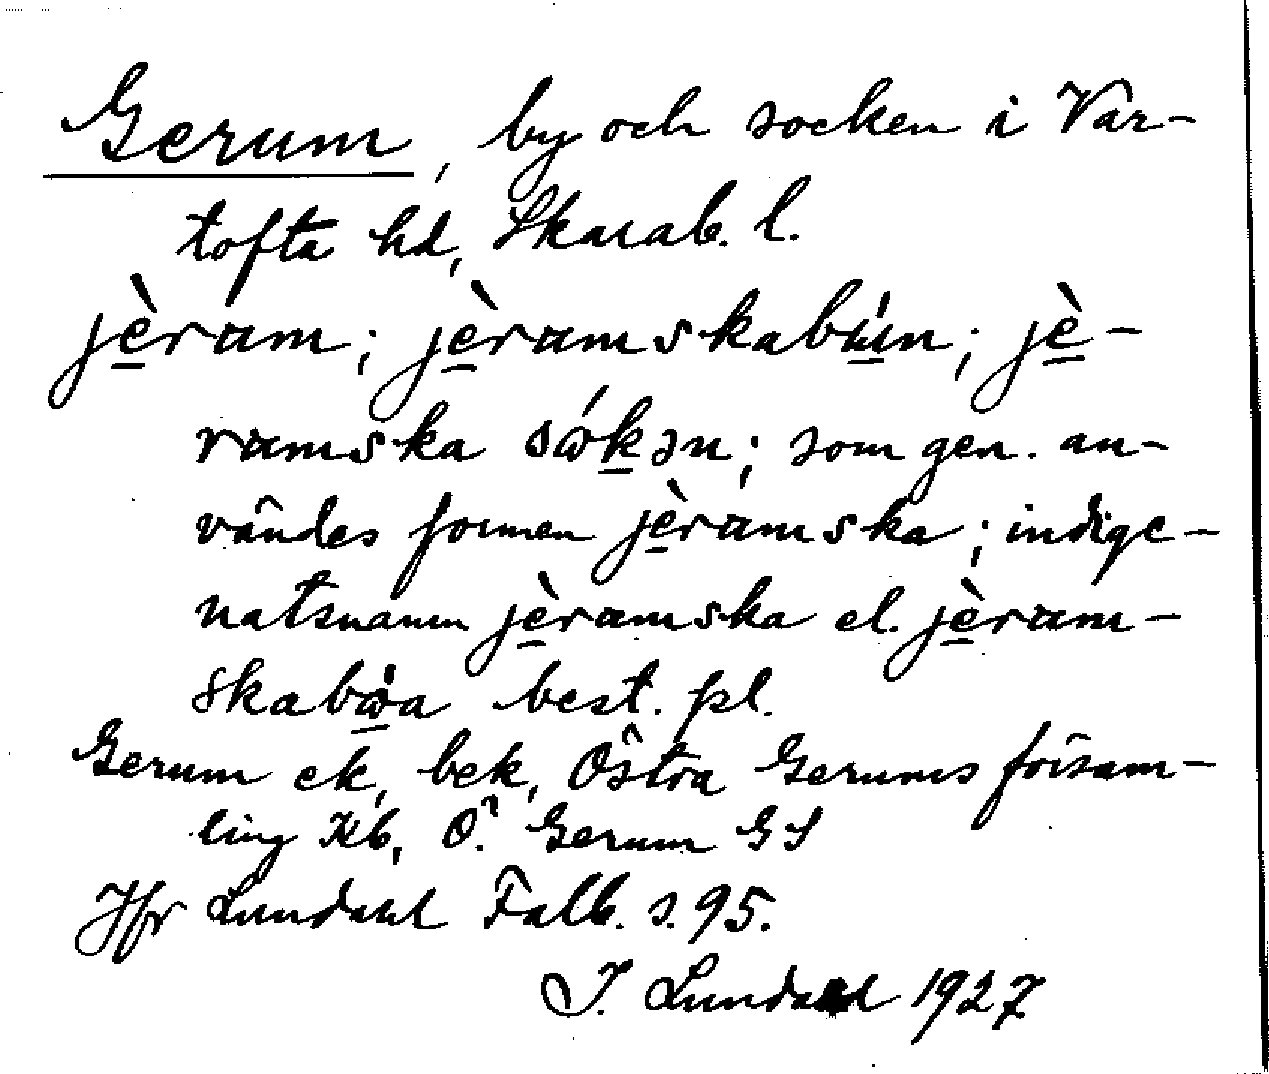 Gerum, by och socken i Var-
tofta hd, Skarab. l.
jè̱ram; jè̱ramskabú̱n; jè̱-
ramska sɷ́ḵən; som gen. an-
vändes formen jè̱ramska; indige-
natsnamn jè̱ramska el. jè̱ram-
skabɷ̱́a best. pl.
Gerum ek, bek, Östra Gerums försam-
ling Kb, Ö. Gerum GS
Jfr Lundahl Falb. s. 95.
I. Lundahl 1927